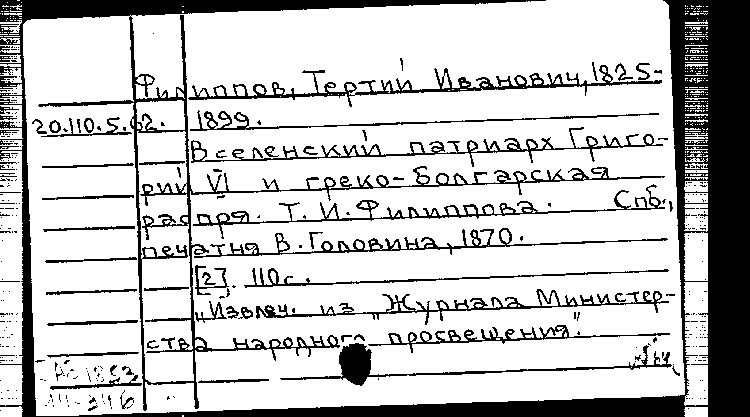 Филиппов, Тертий Иванович, 1825-
20.110.5.62. 1899.
Вселенский патриарх Григо-
рий VI и греко-болгарская
распря. Т. И. Филиппова. Спб.,
печатня В. Головина, 1870.
[2], 110с.
„Извлеч. из „Журнала Министер-
ства народного просвещения".